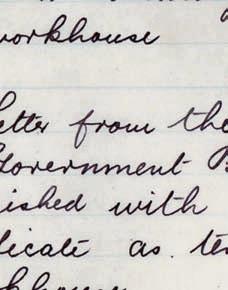 workhouse
etter from the
Government B
ished with
licate as te
khouse